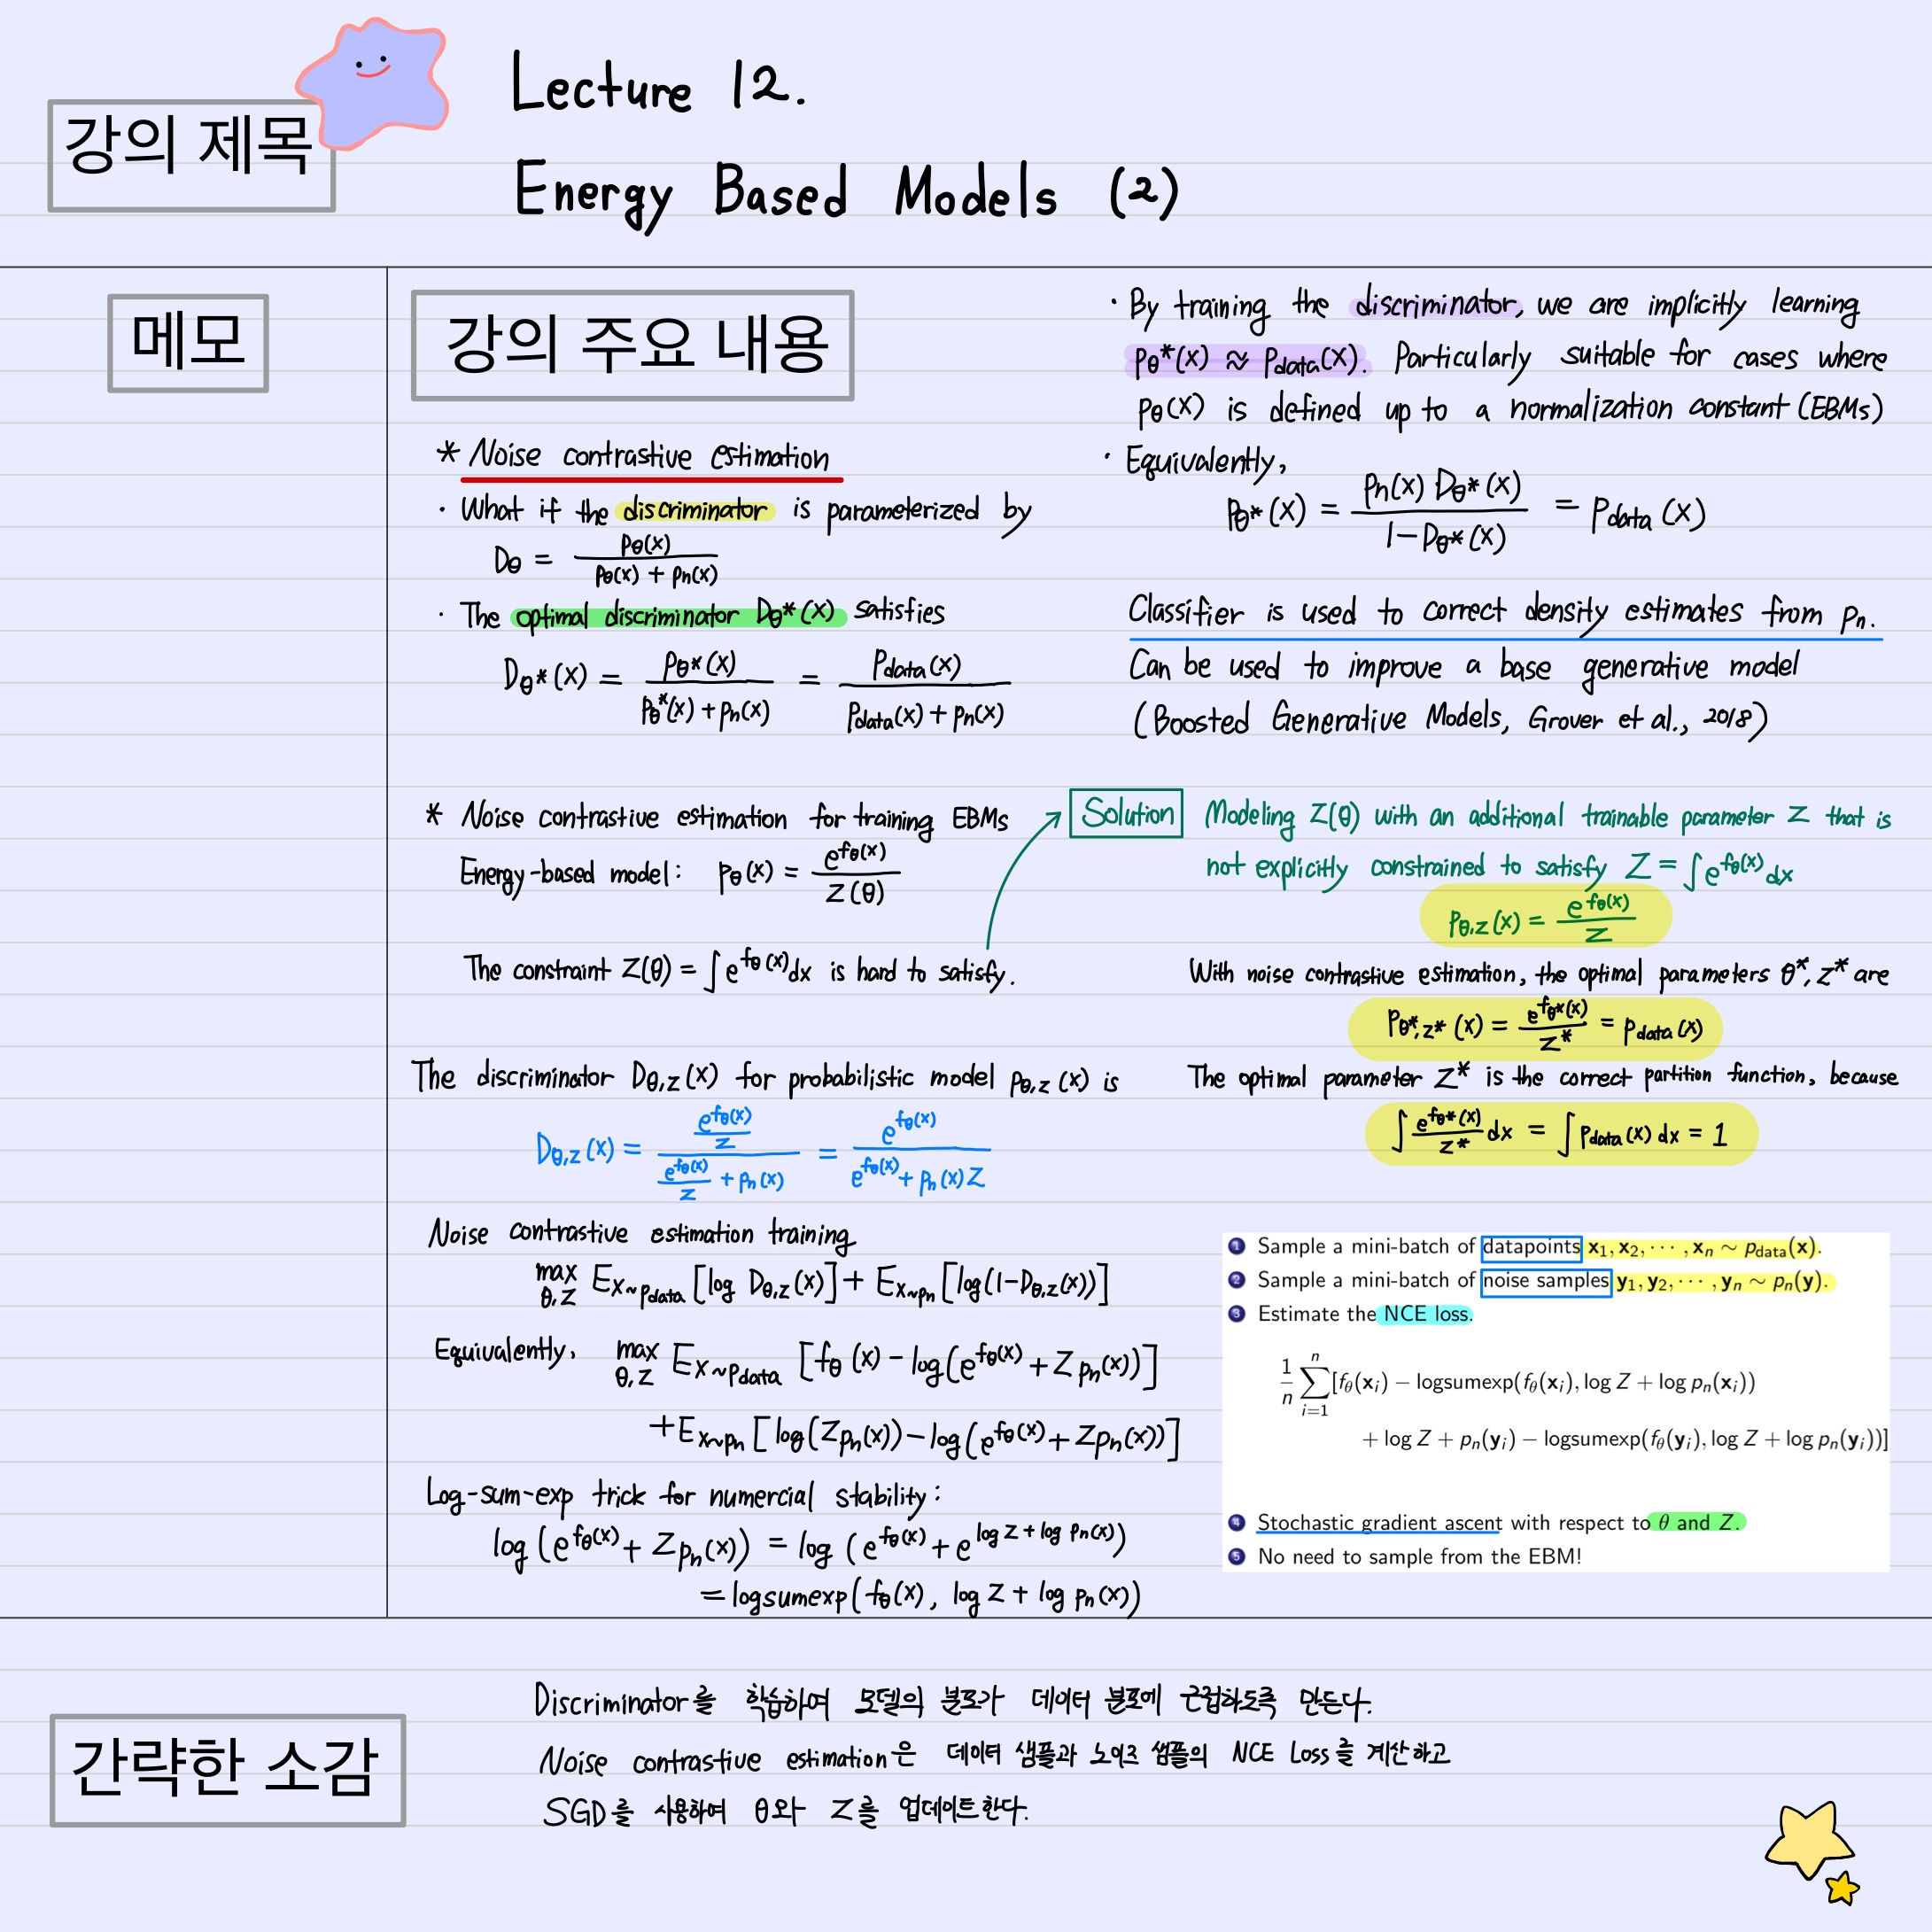 강의 제목
Lecture 12.
Energy Based Models (2)
메모
강의 주요 내용
* Noise contrastive estimation
· What if the discriminator is parameterized by
Dθ = pθ(x) / (pθ(x) + pn(x))
· The optimal discriminator Dθ*(x) satisfies
Dθ*(x) = pθ*(x) / (pθ*(x) + pn(x)) = pdata(x) / (pdata(x) + pn(x))
· By training the discriminator, we are implicitly learning
pθ*(x) ≈ pdata(x). Particularly suitable for cases where
pθ(x) is defined up to a normalization constant (EBMs)
· Equivalently,
pθ*(x) = pn(x) Dθ*(x) / (1 - Dθ*(x)) = pdata(x)
Classifier is used to correct density estimates from pn.
Can be used to improve a base generative model
(Boosted Generative Models, Grover et al., 2018)
* Noise contrastive estimation for training EBMs
Energy-based model: pθ(x) = e^{fθ(x)} / Z(θ)
The constraint Z(θ) = ∫ e^{fθ(x)} dx is hard to satisfy.
Solution Modeling Z(θ) with an additional trainable parameter Z that is
not explicitly constrained to satisfy Z = ∫ e^{fθ(x)} dx
pθ,Z(x) = e^{fθ(x)} / Z
With noise contrastive estimation, the optimal parameters θ*, Z* are
pθ*,Z*(x) = e^{fθ*(x)} / Z* = pdata(x)
The optimal parameter Z* is the correct partition function, because
∫ e^{fθ*(x)} / Z* dx = ∫ pdata(x) dx = 1
The discriminator Dθ,Z(x) for probabilistic model pθ,Z(x) is
Dθ,Z(x) = (e^{fθ(x)} / Z) / (e^{fθ(x)} / Z + pn(x)) = e^{fθ(x)} / (e^{fθ(x)} + pn(x)Z)
Noise contrastive estimation training
max θ,Z E x~pdata [log Dθ,Z(x)] + E x~pn [log(1-Dθ,Z(x))]
Equivalently, max θ,Z E x~pdata [fθ(x) - log(e^{fθ(x)} + Z pn(x))]
+ E x~pn [log(Z pn(x)) - log(e^{fθ(x)} + Z pn(x))]
Log-sum-exp trick for numercial stability:
log(e^{fθ(x)} + Z pn(x)) = log(e^{fθ(x)} + e^{log Z + log pn(x)})
= logsumexp(fθ(x), log Z + log pn(x))
1 Sample a mini-batch of datapoints x1, x2, ··· , xn ∼ pdata(x).
2 Sample a mini-batch of noise samples y1, y2, ··· , yn ∼ pn(y).
3 Estimate the NCE loss.
1/n ∑_{i=1}^{n} [fθ(xi) − logsumexp(fθ(xi), log Z + log pn(xi))
+ log Z + pn(yi) − logsumexp(fθ(yi), log Z + log pn(yi))]
4 Stochastic gradient ascent with respect to θ and Z.
5 No need to sample from the EBM!
간략한 소감
Discriminator를 학습하여 모델의 분포가 데이터 분포에 근접하도록 만든다.
Noise contrastive estimation은 데이터 샘플과 노이즈 샘플의 NCE Loss를 계산하고
SGD를 사용하여 θ와 Z를 업데이트한다.